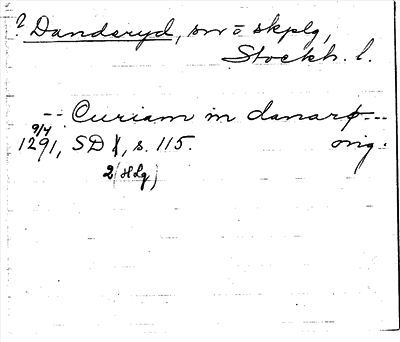 ? Danderyd, sn o skplg,
Stockh. l.
-- Curiam in danarø --
9/4
1291, SD 1, s. 115. orig.
2 (HLg)